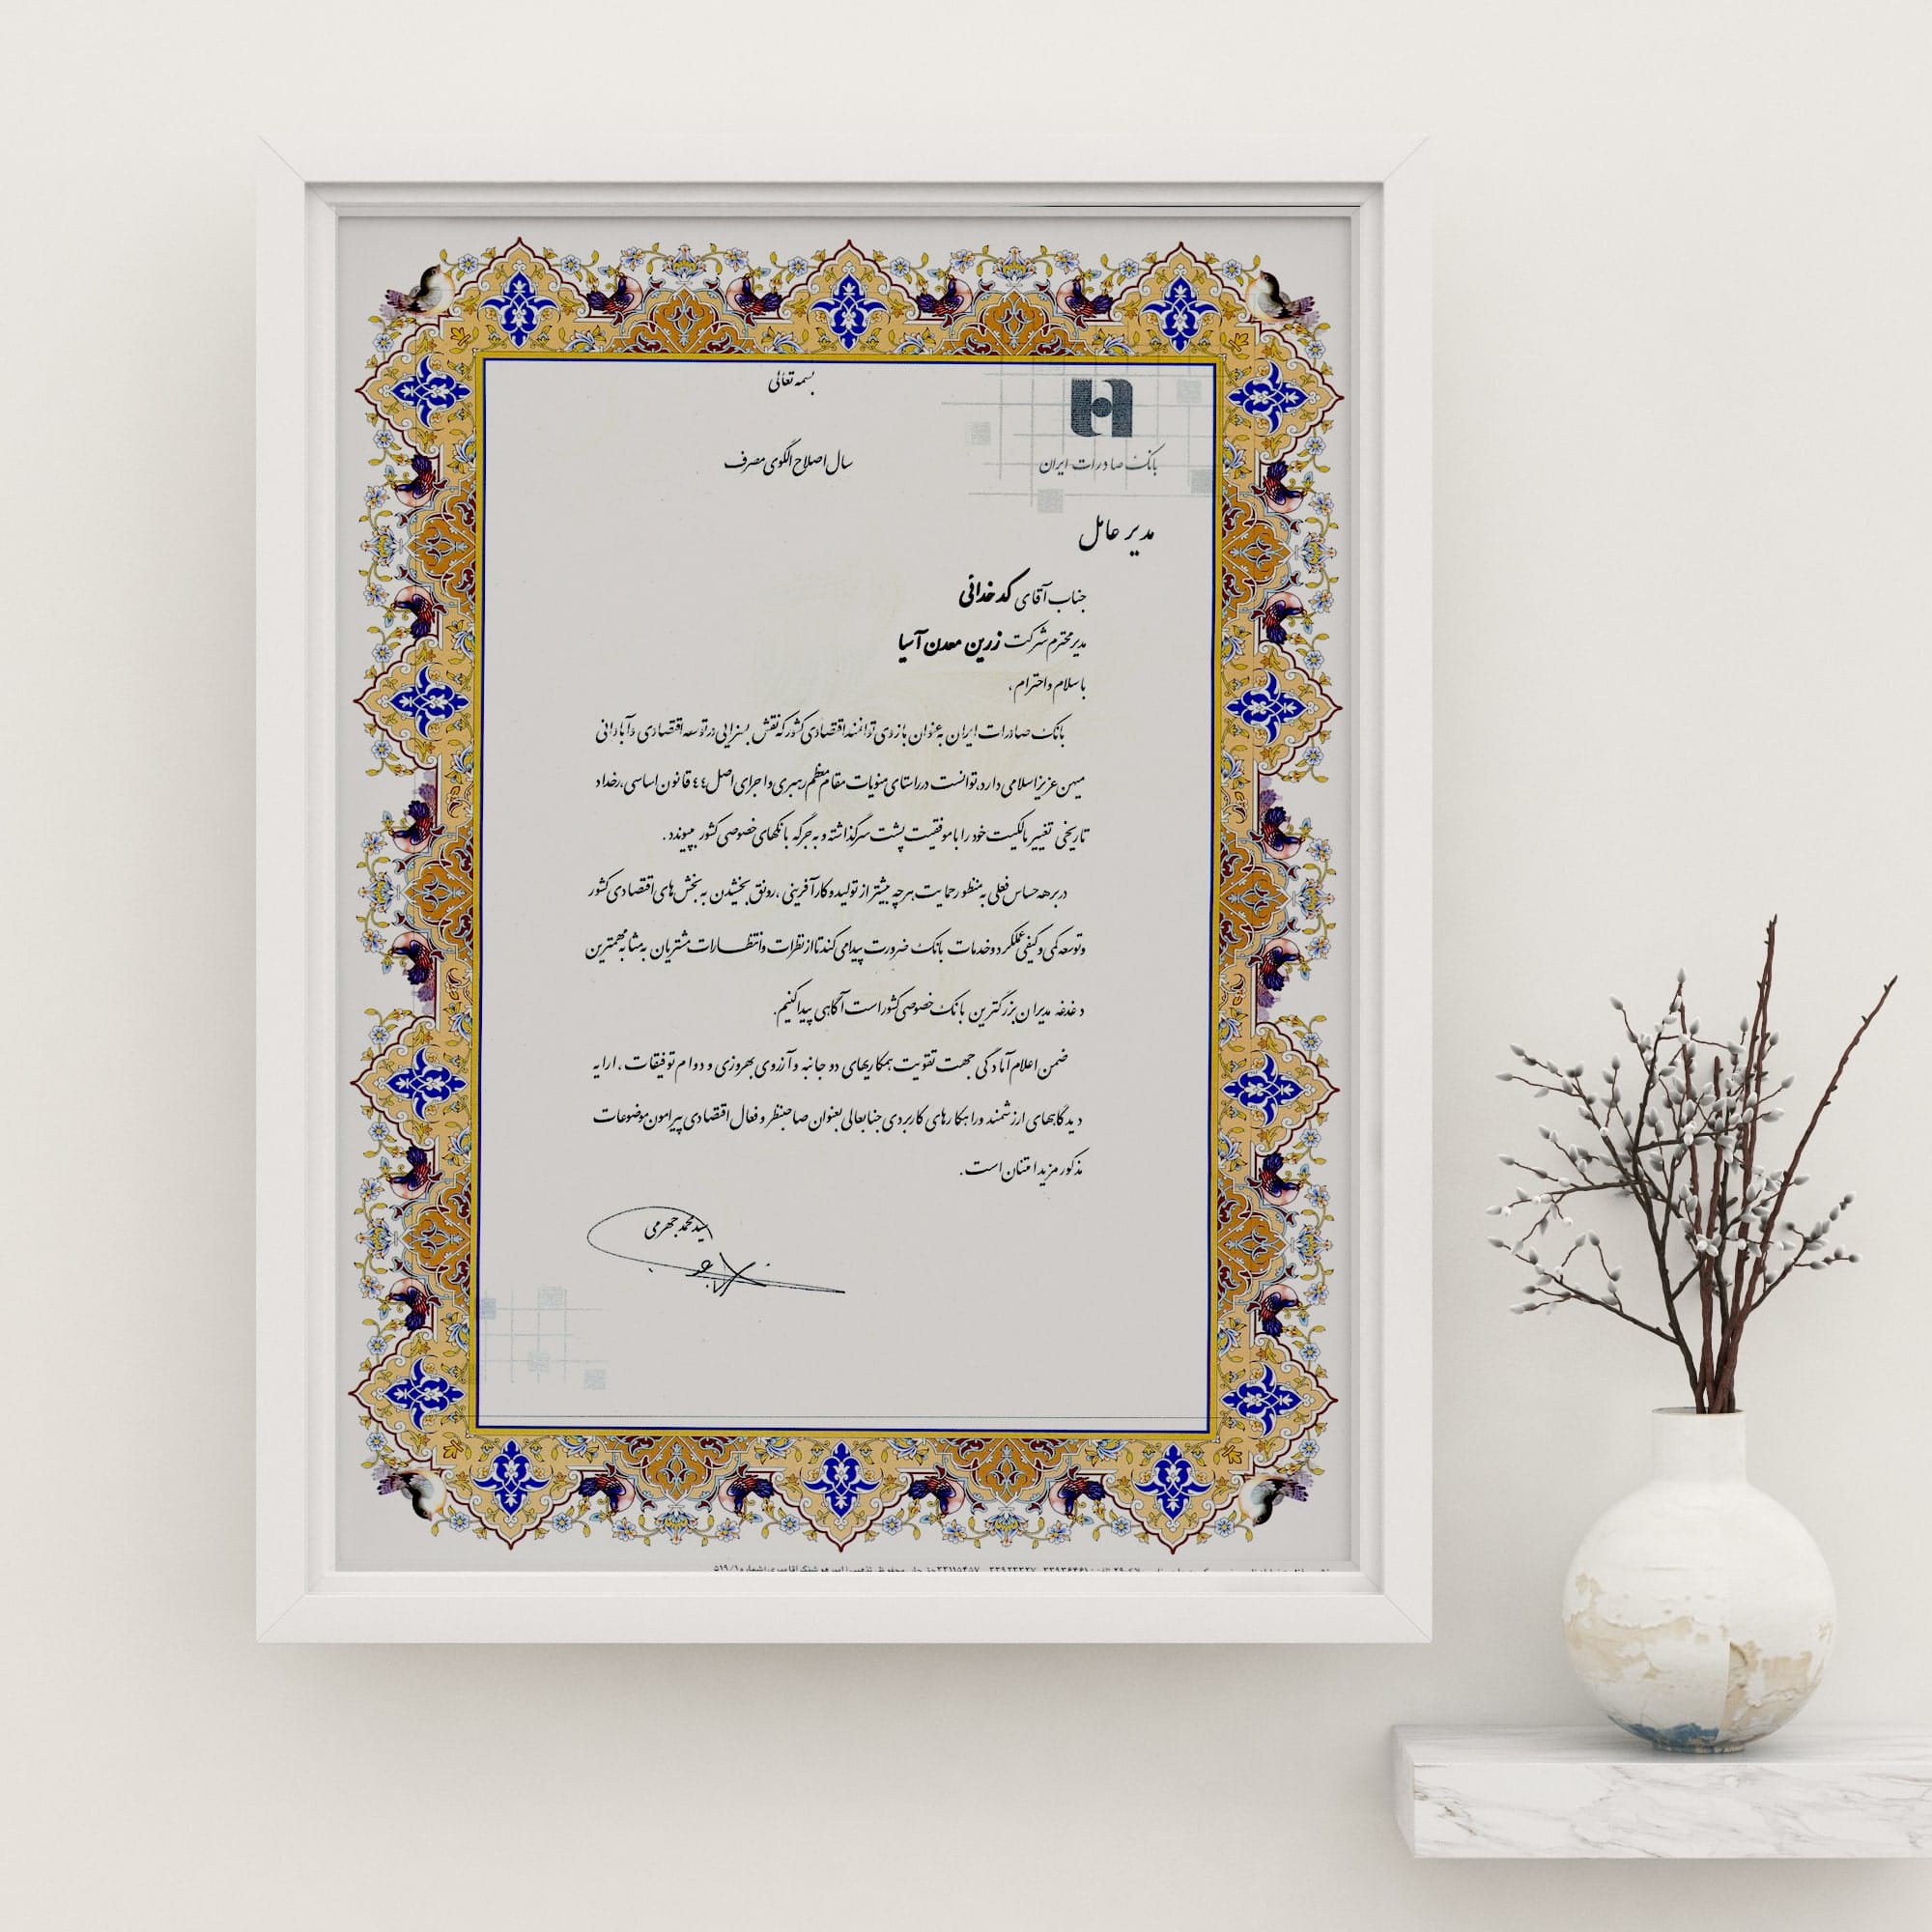 بسمه تعالی
بانک صادرات ایران
سال اصلاح الگوی مصرف
مدیر عامل
جناب آقای کدخدائی
مدیر محترم شرکت زرین معدن آسیا
با سلام و احترام ،
بانک صادرات ایران به عنوان بازوی توانمند اقتصادی کشور که نقش بسزایی در توسعه اقتصادی و آبادانی
میهن عزیز اسلامی دارد، توانست در راستای منویات مقام معظم رهبری و اجرای اصل ٤٤ قانون اساسی، رخداد
تاریخی تغییر مالکیت خود را با موفقیت پشت سر گذاشته و به جرگه بانکهای خصوصی کشور بپیوندد .
در برهه حساس فعلی به منظور حمایت هرچه بیشتر از تولید و کارآفرینی ، رونق بخشیدن به بخش های اقتصادی کشور
و توسعه کمی و کیفی عملکرد و خدمات بانک ضرورت پیدا می کند تا از نظرات و انتظارات مشتریان به مثابه مهمترین
دغدغه مدیران بزرگترین بانک خصوصی کشور است آگاهی پیدا کنیم.
ضمن اعلام آمادگی جهت تقویت همکاریهای دو جانبه و آرزوی بهروزی و دوام توفیقات ، ارایه
دیدگاههای ارزشمند و راهکارهای کاربردی جنابعالی بعنوان صاحبنظر و فعال اقتصادی پیرامون موضوعات
مذکور مزید امتنان است .
سید محمد جهرمی